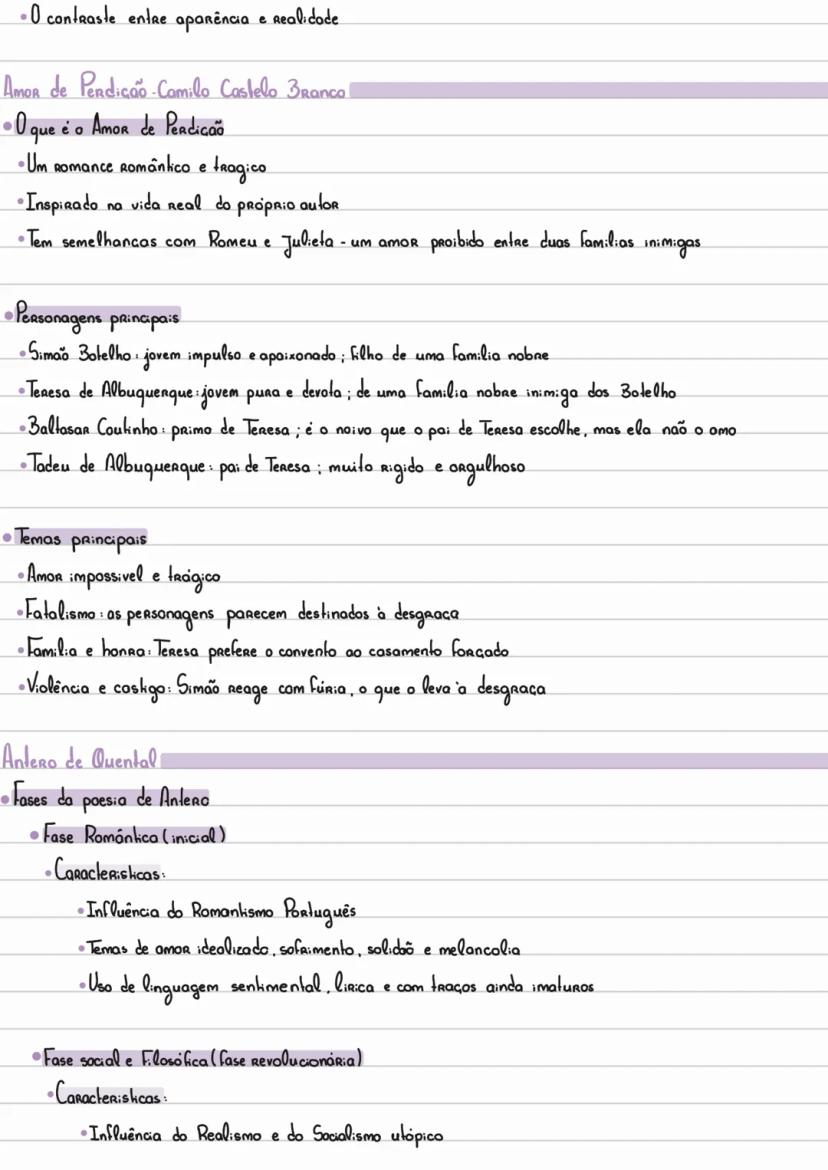 • O contraste entre aparência e realidade
Amor de Perdição - Camilo Castelo Branco
• O que é o Amor de Perdicaõ
• Um romance romântico e tragico
• Inspirado na vida real do próprio autor
• Tem semelhancas com Romeu e Julieta - um amor proibido entre duas familias inimigas
• Personagens principais
• Simaõ Botelho: jovem impulso e apaixonado; filho de uma familia nobre
• Teresa de Albuquerque: jovem pura e devota; de uma familia nobre inimiga dos Botelho
• Baltasar Coutinho: primo de Teresa; é o noivo que o pai de Teresa escolhe, mas ela naõ o ama
• Tadeu de Albuquerque: pai de Teresa; muito rigido e orgulhoso
• Temas principais
• Amor impossivel e trágico
• Fatalismo: as personagens parecem destinados à desgraça
• Familia e honra: Teresa prefere o convento ao casamento forçado
• Violência e castigo: Simaõ reage com fúria, o que o leva à desgraça
Antero de Quental
• Fases da poesia de Antero
• Fase Romântica (inicial)
• Caracteristicas:
• Influência do Romantismo Português
• Temas de amor idealizado, sofrimento, solidaõ e melancolia
• Uso de linguagem sentimental, lirica e com traços ainda imaturos
• Fase social e Filosófica (fase revolucionária)
• Caracteristicas:
• Influência do Realismo e do Socialismo utópico